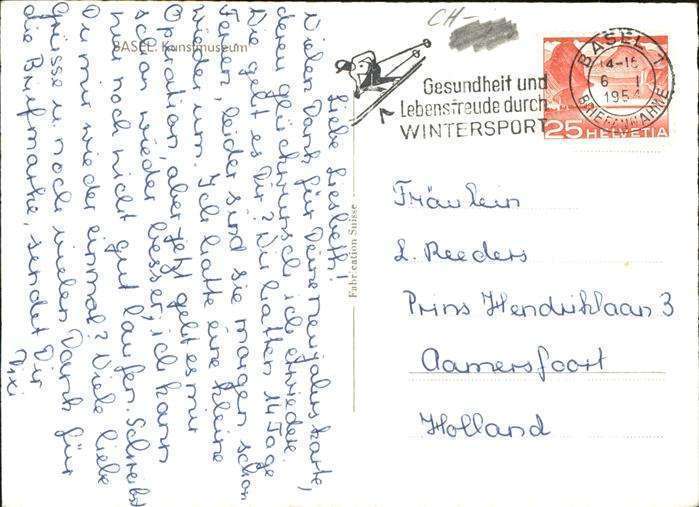 BASEL. Kunstmuseum
Liebe Liesbeth!
Vielen Dank für Deine Neujahrskarte,
deren Glückwunsch ich erwidere.
Wie geht es Dir? Wir hatten 14 Tage
Ferien, leider sind sie morgen schon
wieder um. Ich hatte eine kleine
Operation, aber jetzt geht es mir
schon wieder besser, ich kann
nur noch nicht gut laufen. Schreibst
Du mir wieder einmal? Viele liebe
Grüsse u. noch vielen Dank für
die Briefmarke, sendet Dir
Fabrication Suisse
CH-
Gesundheit und
Lebensfreude durch
WINTERSPORT
BASEL 1
14-15
6. I
1954
BRIEFANNAHME
25 HELVETIA
Fräulein
L. Reeders
Prins Hendriklaan 3
Aamersfoort
Holland